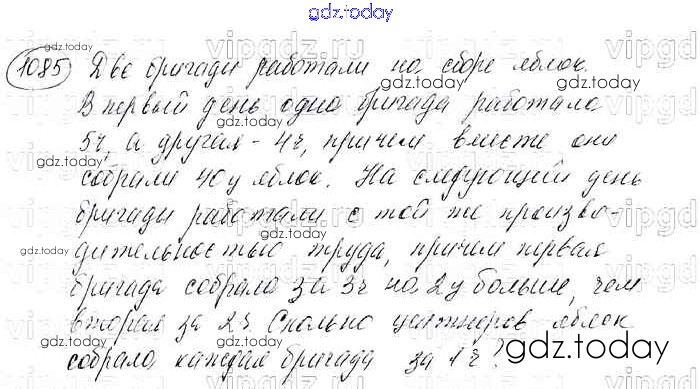 gdz.today
1085 Две бригады работали на сборе яблок.
В первый день одна бригада работала
5ч, а другая - 4ч, причем вместе они
собрали 40ц яблок. На следующий день
бригады работали с той же произво-
дительностью труда, причем первая
бригада собрала за 3ч на 2ц больше, чем
вторая за 2ч. Сколько центнеров яблок
собрала каждая бригада за 1ч?
gdz.today